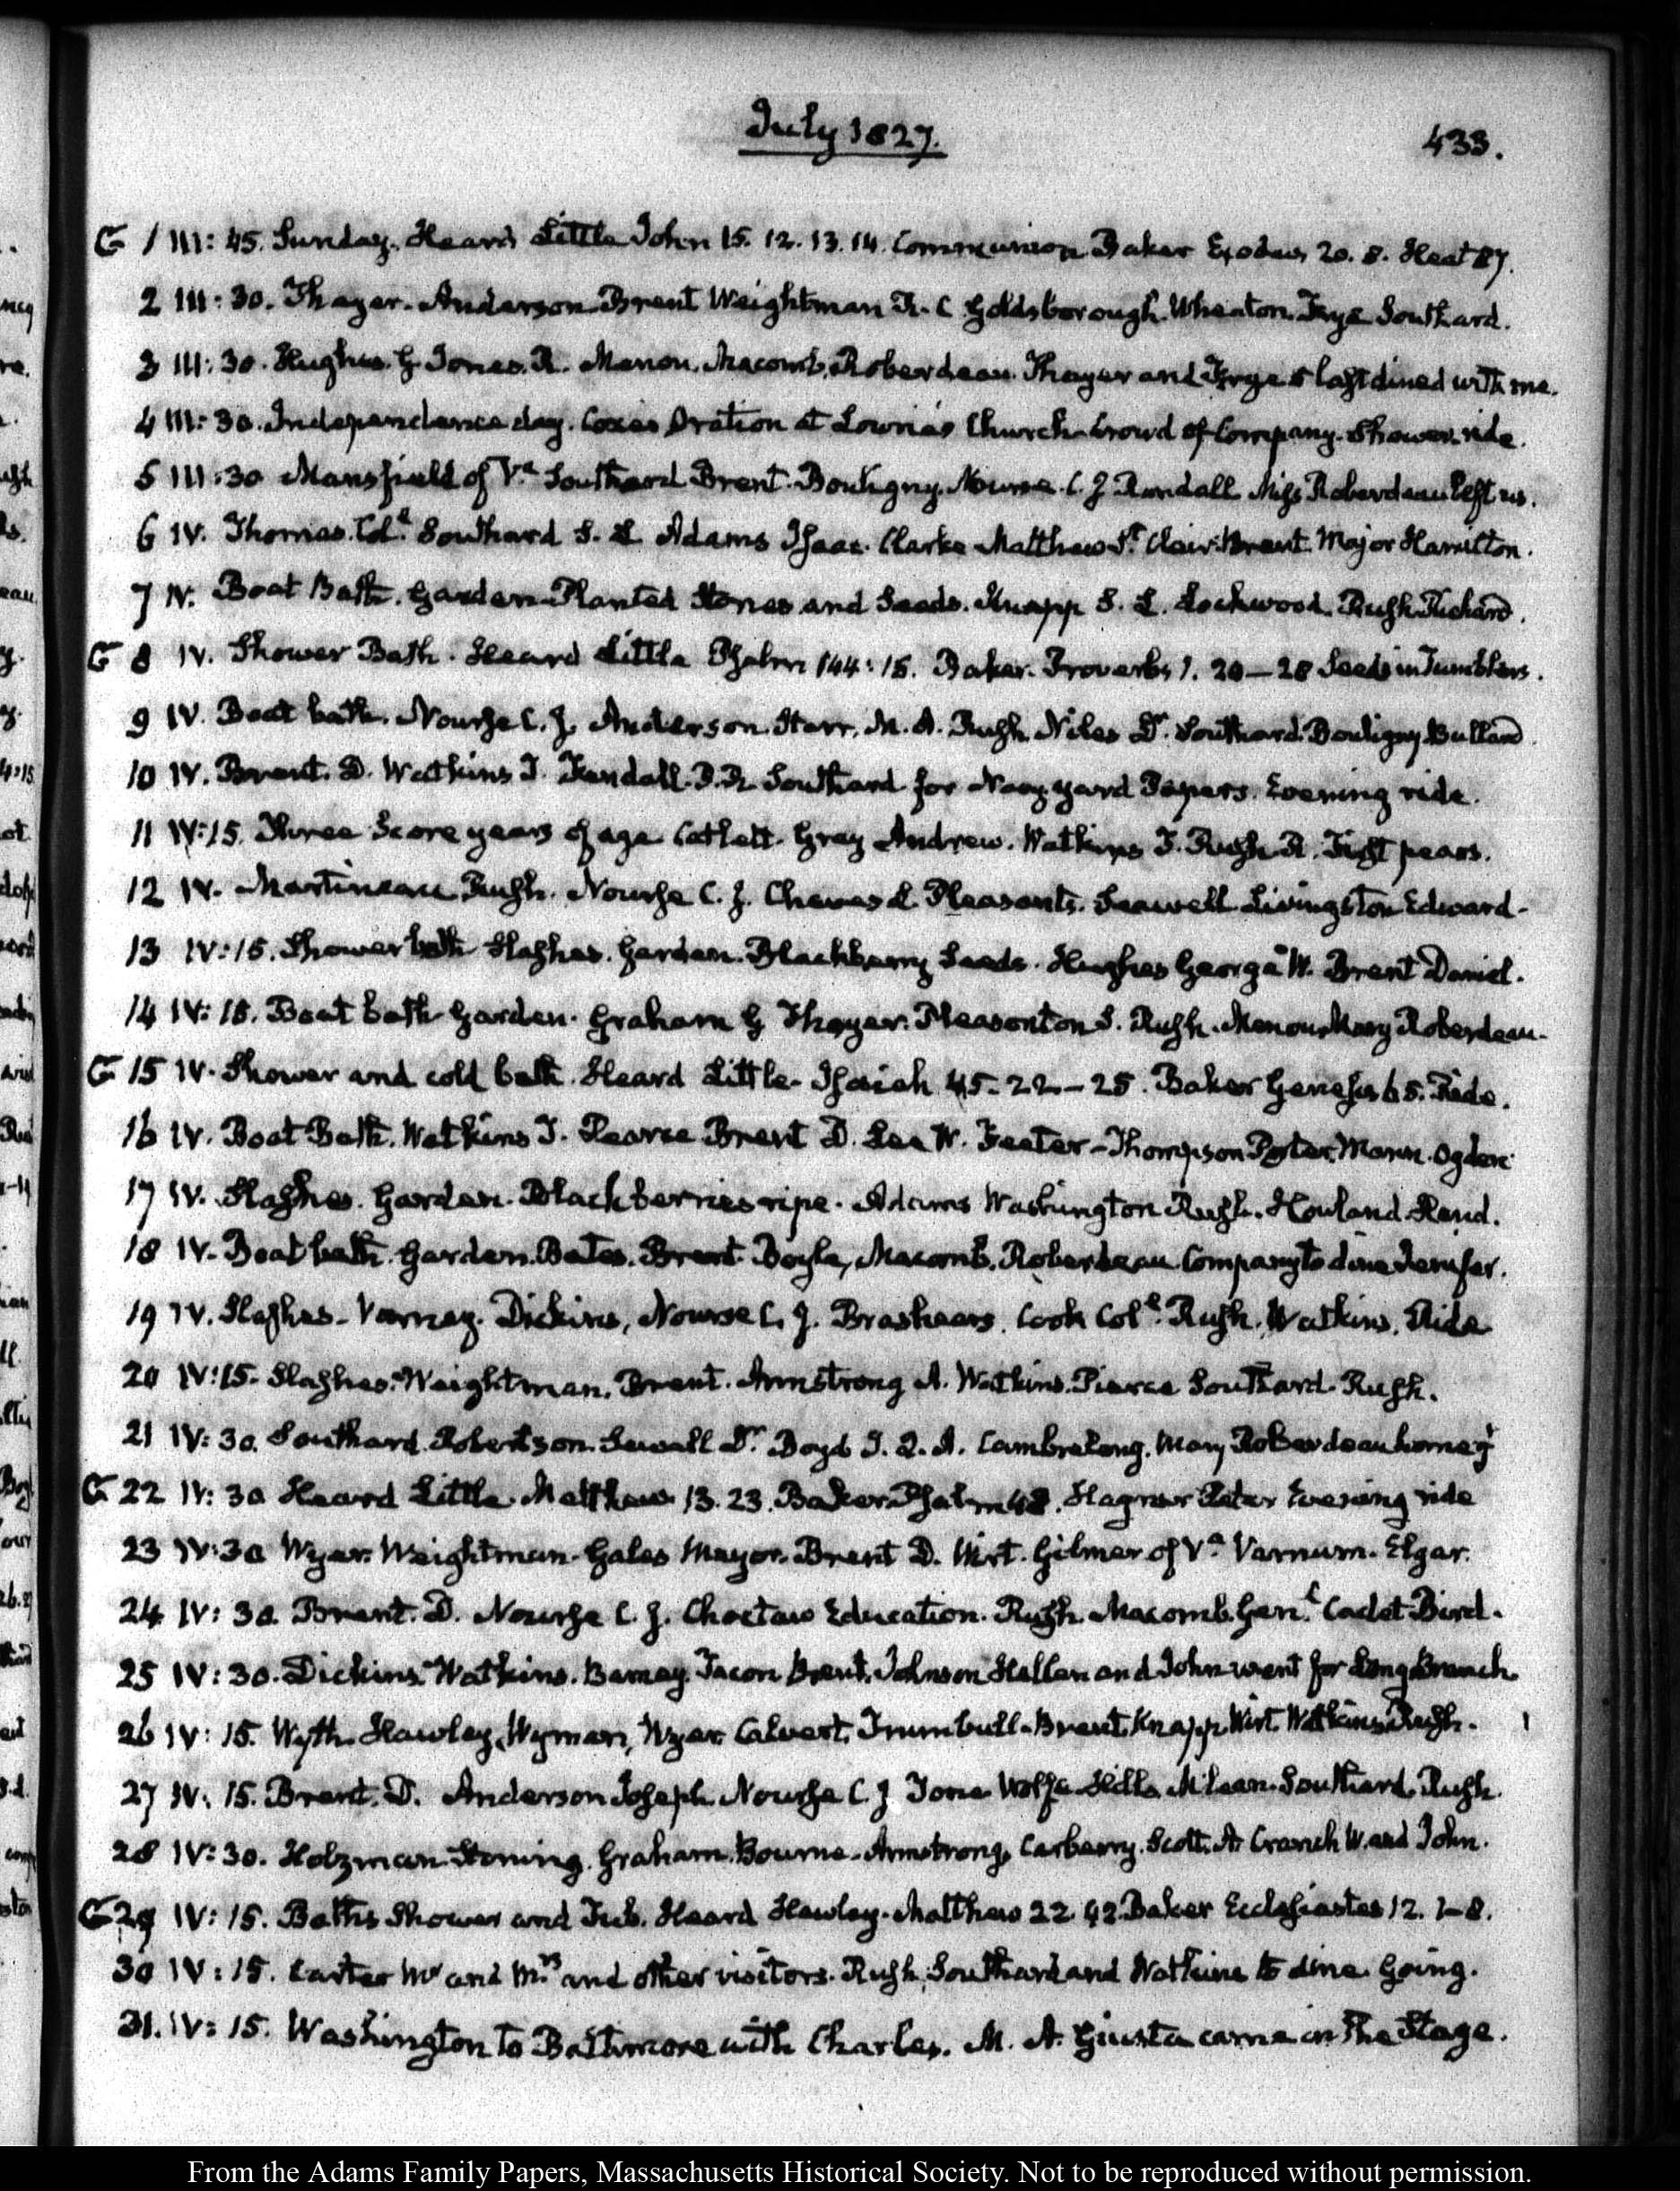 July 1827.
433.
G 1 III: 45. Sunday. Heard Little John 15. 12. 13. 14. Communion Baker Exodus 20. 8. Heat 87.
2 III: 30. Thayer. Anderson Brent Weightman R. C Goldsborough. Wheaton Frye Southard.
3 III: 30. Hughes. G. Jones. R. Menou. Macomb. Roberdeau. Thayer and Frye last dined with me.
4 III: 30. Independence day. Coxes Oration at Church. Crowd of Company. Shower. ride.
5 III: 30 Mansfield of Va. Southard Brent. Bouligny. Nourse C. J Randall Miss Roberdeau left us.
6 IV. Thomas. Southard S. L Adams Isaac. Clarke Matthew St Clair. Brent. Major Hamilton.
7 IV. Boat Bath. Garden Planted Stones and Seeds. Knapp S. L. Lockwood. Rush Richard.
G 8 IV. Shower Bath. Heard Little Psalm 144: 15. Baker. Proverbs 1. 20—28 Seeds in Tumblers.
9 IV. Boat bath. Nourse C. J. Anderson. Starr. M. A. Rush. Niles Dr. Southard. Bouligny Bullard.
10 IV. Brent. D. Watkins T. Southard for Navy yard Papers. Evening ride.
11 IV: 15. Three Score years of age Catlett. Gray Andrew. Watkins T. Rush R. First pears.
12 IV. Martineau Rush. Nourse C. J. Cheves L Pleasants. Seawell Livingston Edward.
13 IV: 15. Shower bath Slashes. Garden. Blackberry Seeds. Hughes George W. Brent Daniel.
14 IV: 15. Boat bath Garden. Graham G Thayer. Pleasonton S. Rush. Menou. Mary Roberdeau.
G 15 IV. Shower and cold bath. Heard Little. Isaiah 45. 22—25. Baker Genesis 6 5. Ride.
16 IV. Boat Bath. Watkins T. Pearce Brent D. Lee W. Thompson Porter. Mann. Ogden
17 IV. Slashes. Garden. Blackberries ripe. Adams Washington Rush. Howland. Rand.
18 IV. Boat bath. Garden. Bates. Brent. Boyle, Macomb. Roberdeau Company to dine
19 IV. Slashes. Dickins, Nourse C. J. Brashears. Cook Rush. Watkins. Ride
20 IV: 15. Slashes. Weightman. Brent. Armstrong A. Watkins. Pierce Southard. Rush.
21 IV: 30. Southard. Robertson. Sewall Dr. Boyd J. Q. A. Cambreleng. Mary Roberdeau home
G 22 IV: 30 Heard Little. Matthew 13. 23. Baker Psalm Hagner Peter Evening ride
23 IV: 30 Wyer. Weightman. Gales Mayor. Brent D. Wirt. Gilmer of Va Varnum. Elgar.
24 IV: 30. Brent. D. Nourse C. J. Choctaw Education. Rush Macomb Genl. Cadet Bird.
25 IV: 30. Dickins Watkins. Brent. Johnson Hellen and John went for Long Branch.
26 IV: 15. Wyth. Hawley. Wyman, Wyer Calvert. Trumbull. Brent. Knapp Wirt Watkins Rush.
27 IV: 15. Brent. D. Anderson Joseph. Nourse C J Wolfe Hills McLean. Southard. Rush.
28 IV: 30. Holzman. Graham. Bourne. Armstrong, Carberry. Scott. A. Cranch W. and John.
G 29 IV: 15. Baths Shower and Tub. Heard Hawley. Matthew 22. 42. Baker Ecclesiastes 12. 1—8.
30 IV: 15. Carter Mr and Mrs and other visitors. Rush, Southard and Watkins to dine. Going.
31. IV: 15. Washington to Baltimore with Charles. M. A. Giusta came in the Stage.
From the Adams Family Papers, Massachusetts Historical Society. Not to be reproduced without permission.